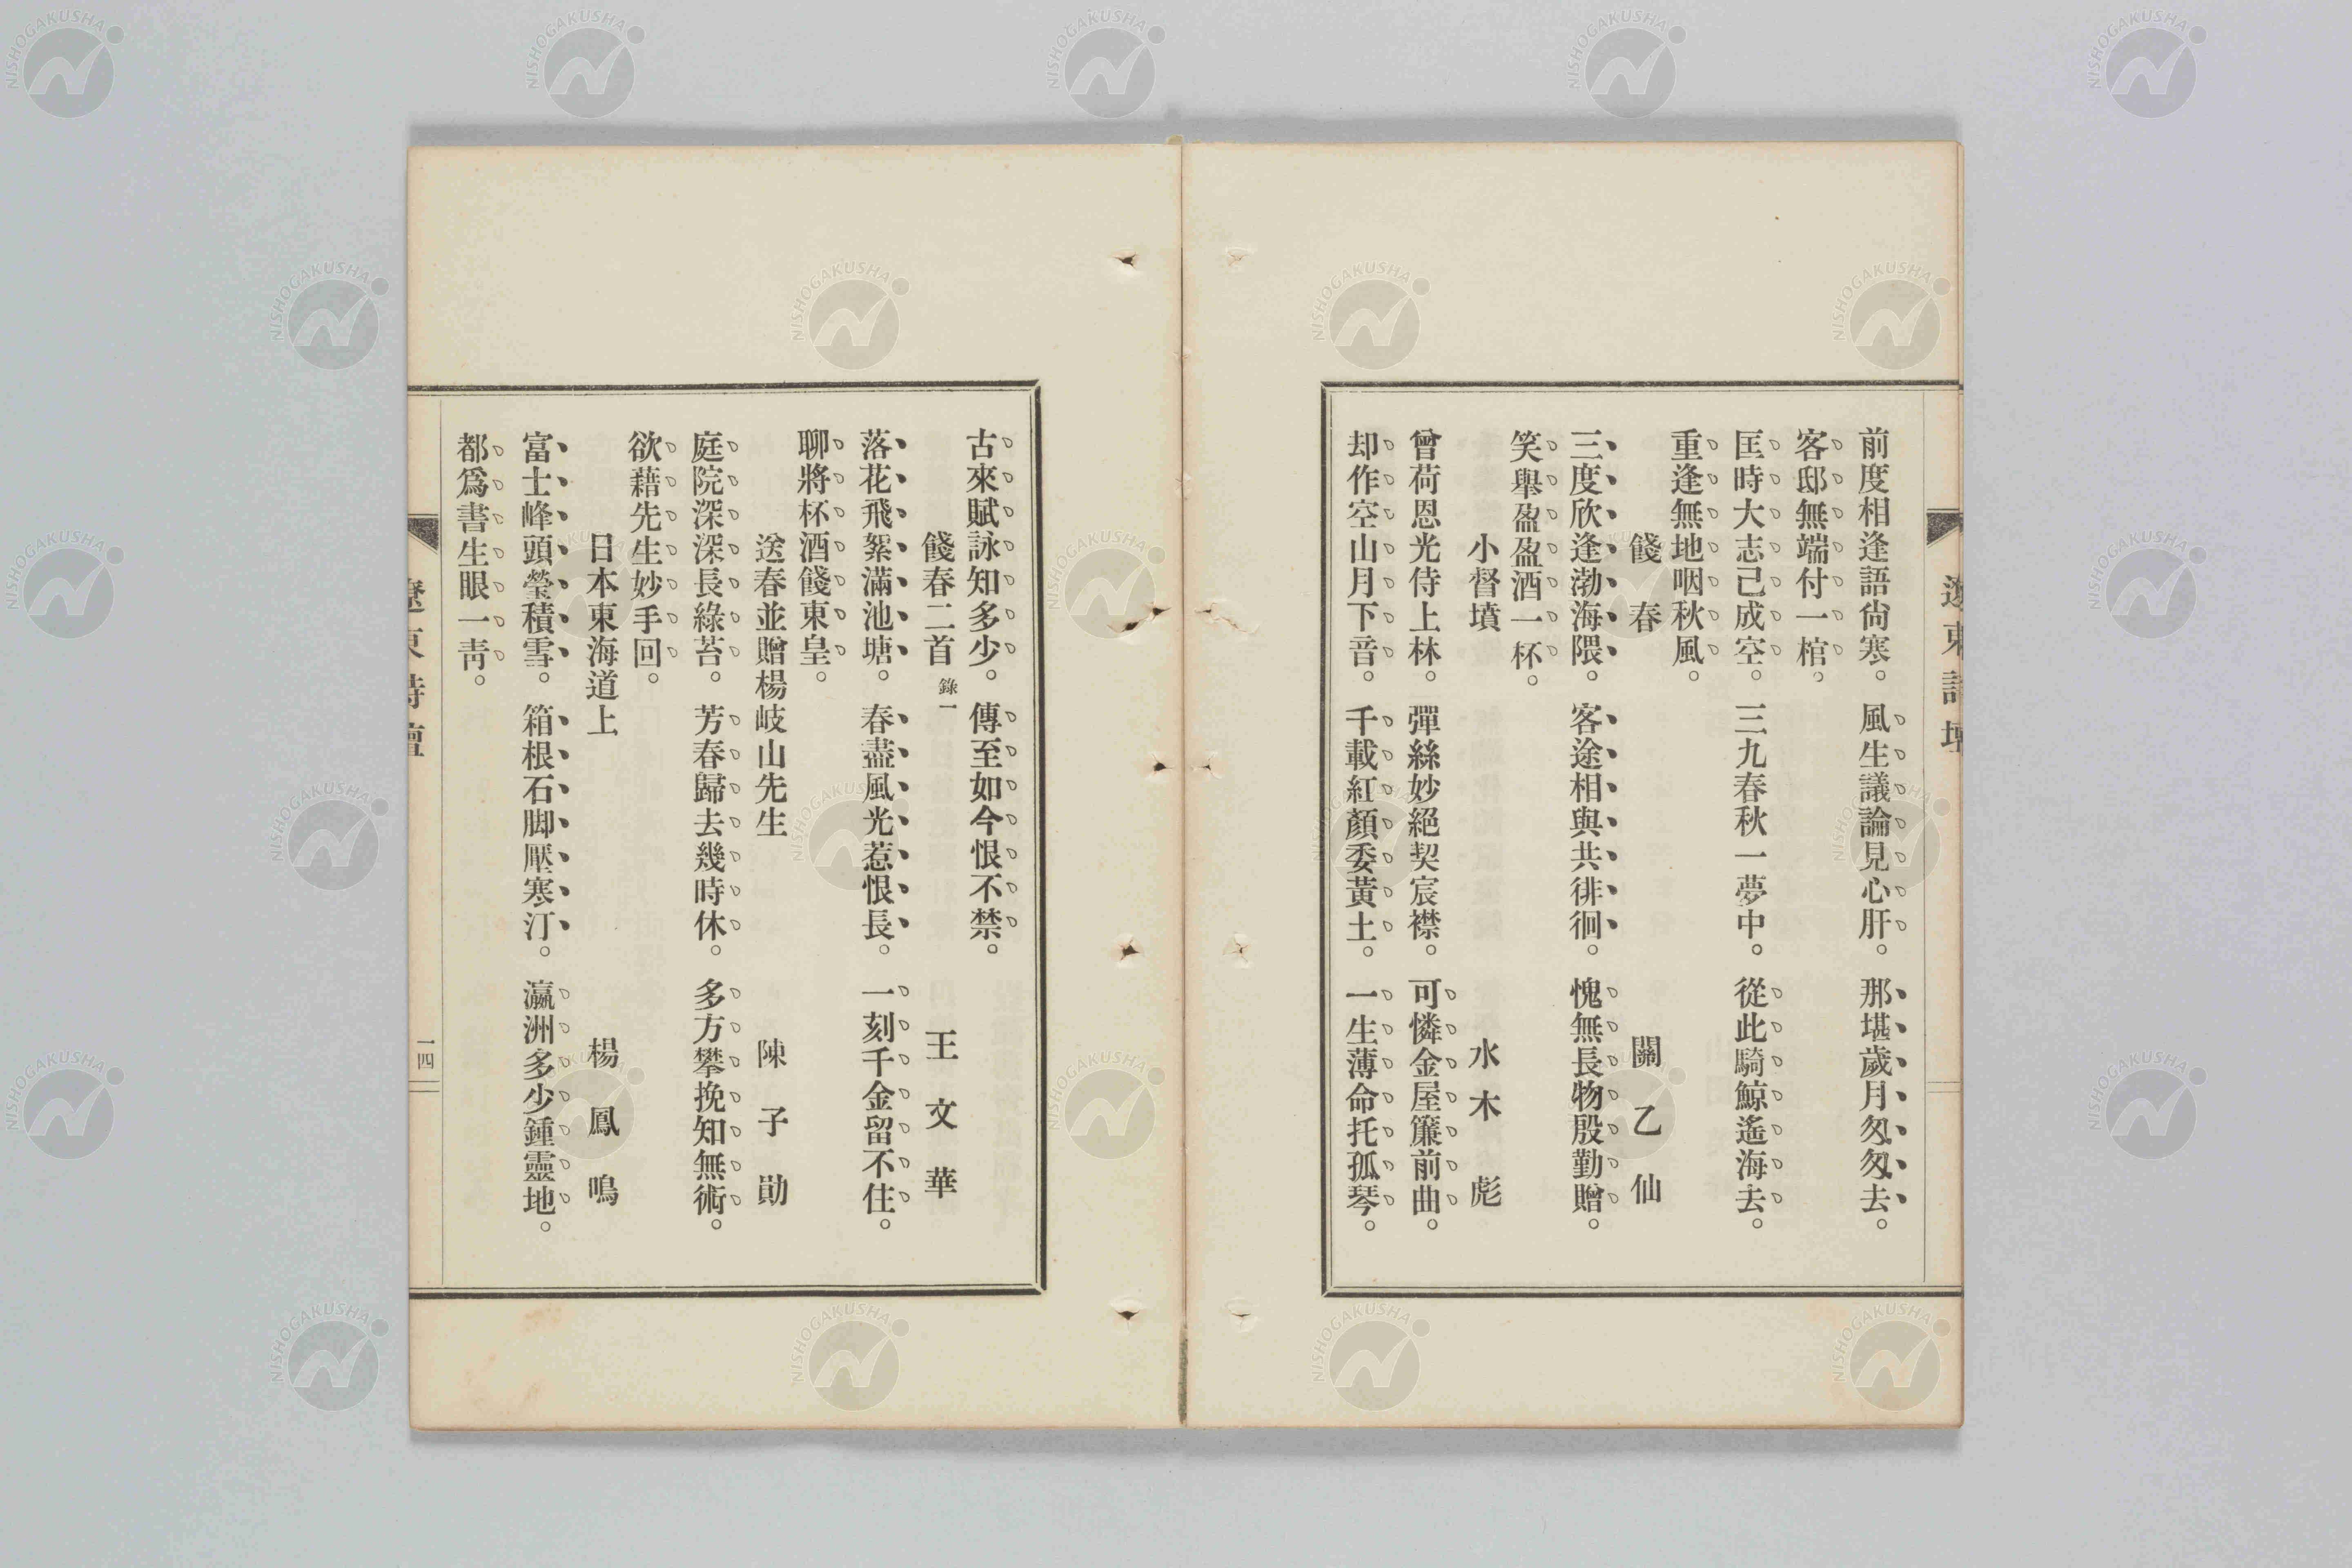 遼東詩壇
前度相逢語尙寒。風生議論見心肝。那堪歲月匆匆去。
客邸無端付一棺。
匡時大志已成空。三九春秋一夢中。從此騎鯨遙海去。
重逢無地咽秋風。
餞春 關乙仙
三度欣逢渤海隈。客途相與共徘徊。愧無長物殷勤贈。
笑舉盈盈酒一杯。
小督墳 水木彪
曾荷恩光侍上林。彈絲妙絕契宸襟。可憐金屋簾前曲。
却作空山月下音。千載紅顏委黃土。一生薄命托孤琴。
古來賦詠知多少。傳至如今恨不禁。
餞春二首 錄一 王文華
落花飛絮滿池塘。春盡風光惹恨長。一刻千金留不住。
聊將杯酒餞東皇。
送春並贈楊岐山先生 陳子勛
庭院深深長綠苔。芳春歸去幾時休。多方攀挽知無術。
欲藉先生妙手回。
日本東海道上 楊鳳鳴
富士峰頭瑩積雪。箱根石脚壓寒汀。瀛洲多少鍾靈地。
都爲書生眼一靑。
遼東詩壇
一四
NISHOGAKUSHA